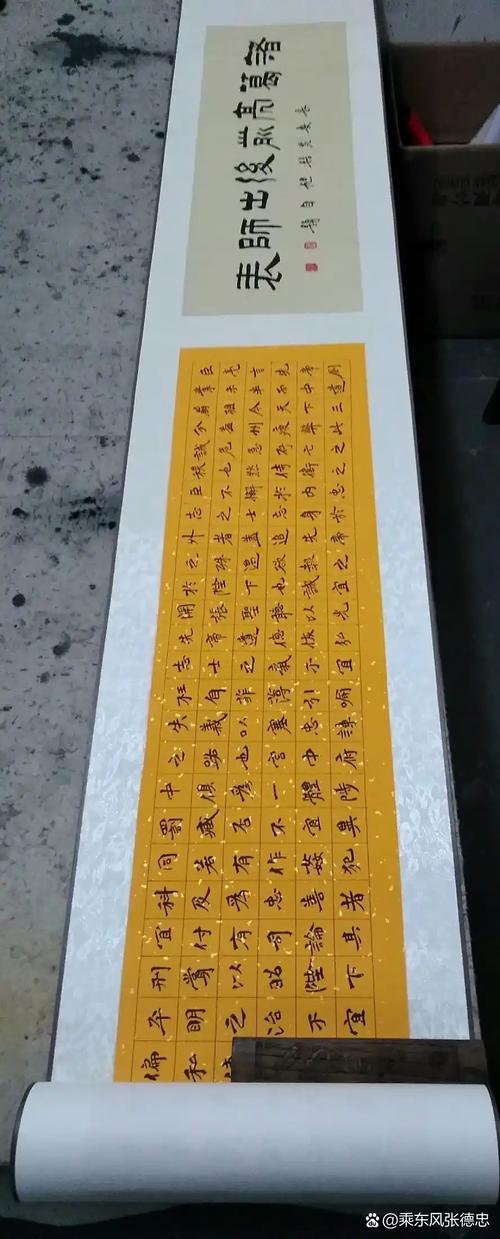 諸葛亮前後出師表
臣亮言先帝創
業未半而中道
崩殂今天下三
分益州疲弊此
誠危急存亡之
秋也然侍衛之
臣不懈於內忠
志之士忘身於
外者蓋追先帝
之殊遇欲報之
於陛下也誠宜
開張聖聽以光
先帝遺德恢弘
志士之氣不宜
妄自菲薄引喻
失義以塞忠諫
之路也宮中府
中俱為一體陟
罰臧否不宜異
同若有作姦犯
科及為忠善者
宜付有司論其
刑賞以昭陛下
平明之治不宜
偏私使
@乘东风张德忠